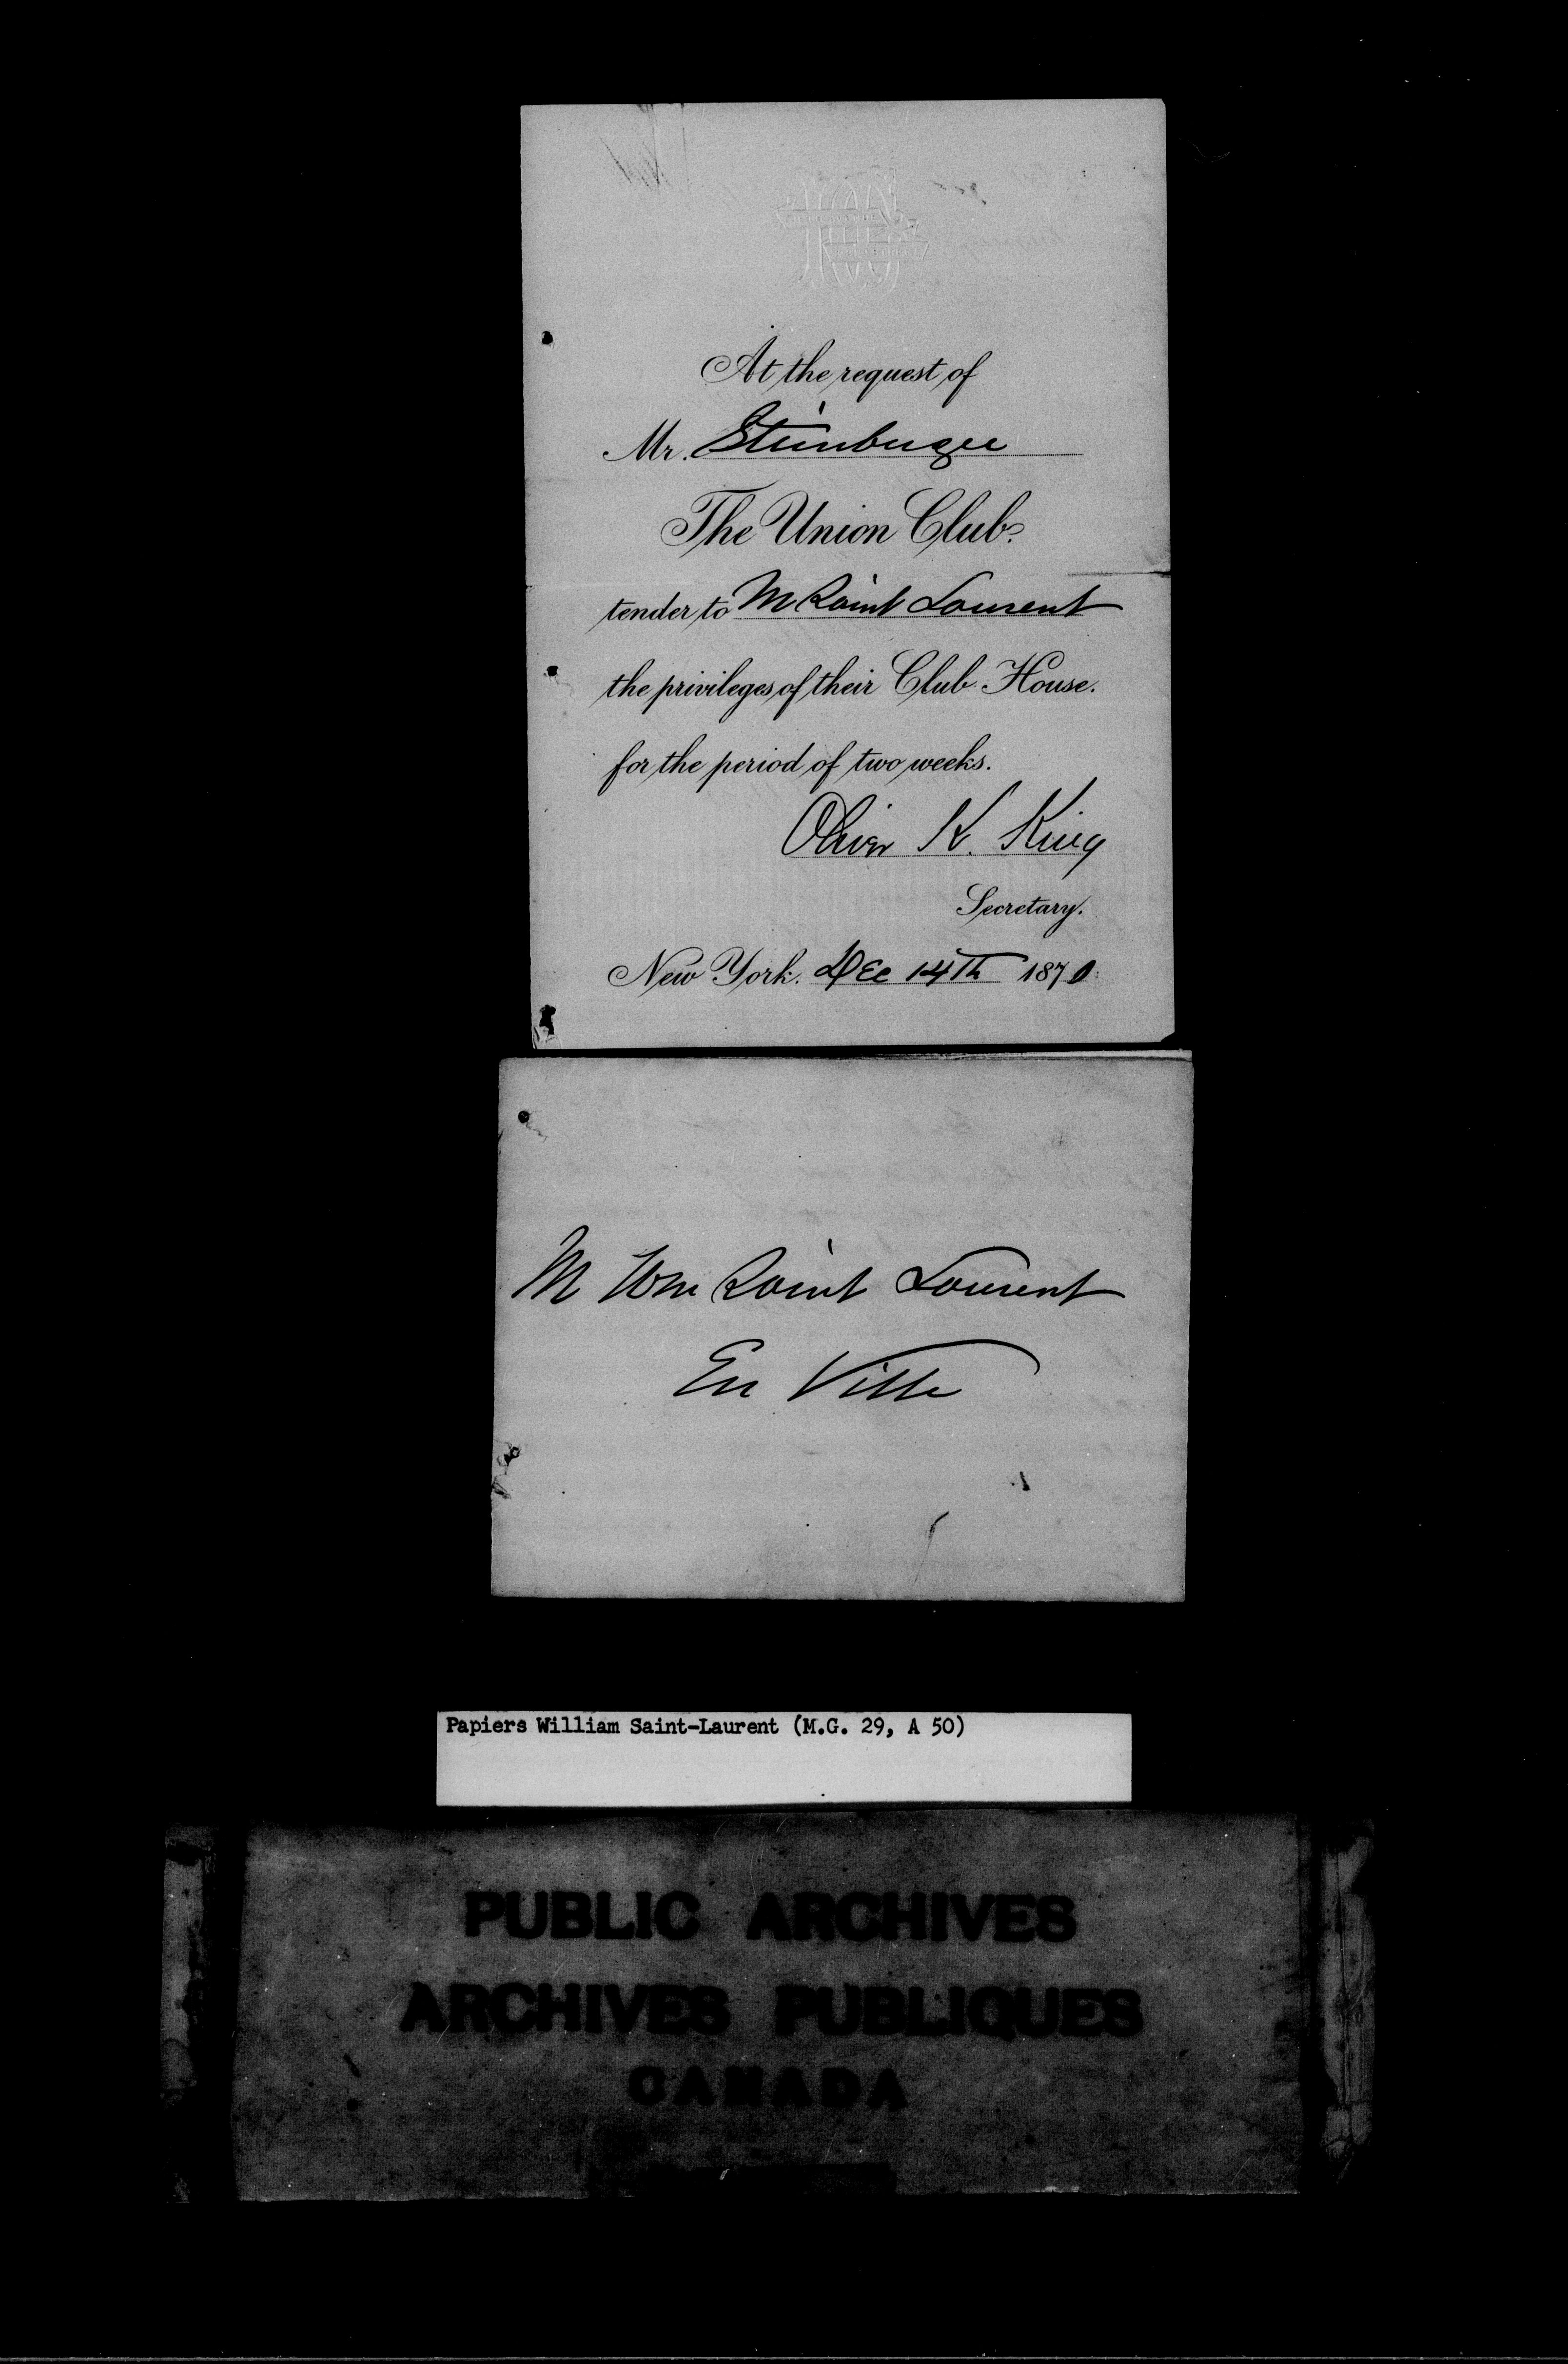 At the request of
Mr. Steinberger
The Union Club
tender to M Saint Laurent
the privileges of their Club House.
for the period of two weeks.
Oliver K. King
Secretary.
New York. Dec 14th 1870
M Wm Saint Laurent
En Ville
Papiers William Saint-Laurent (M.G. 29, A 50)
PUBLIC ARCHIVES
ARCHIVES PUBLIQUES
CANADA